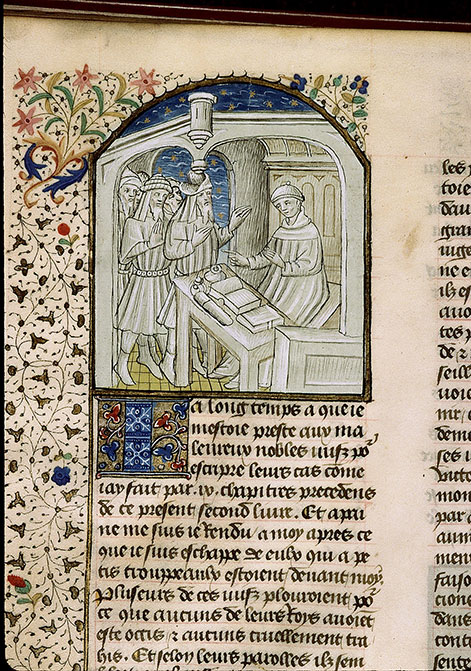 Ja long temps a que ie
mestoie preste aux ma
leureux nobles iuifz po
escripre leurs cas cōme
iay fait par .iv. chapitres precedens
de ce present second liure. Et a pai
ne me suis ie rendu a moy apres ce
que ie suis eschappe de ceulx qui a pe
tis trouppeaulx estoient deuant moy.
Plusieurs de ces iuifz plouroient po
ce que aucuns de leurs roys auoiēt
este occis & aucuns cruellement tra
his. Et selon leurs parolles ilz sem
les
toie
dau
gran
iuge
ne e
ilz es
auo
tes p
de &
seille
uoie
me,
dema
ses
mon
par
aum
men
faiso
cion
dauo
cont
sente